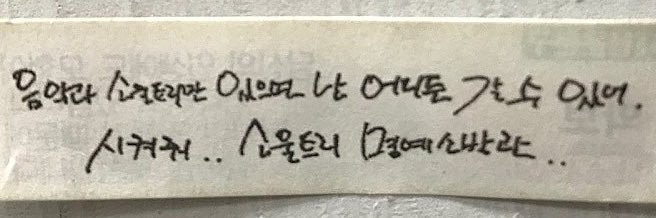 음악과 소울트리만 있으면 난 어디든 갈 수 있어.
시켜줘.. 소울트리 명예소방관..